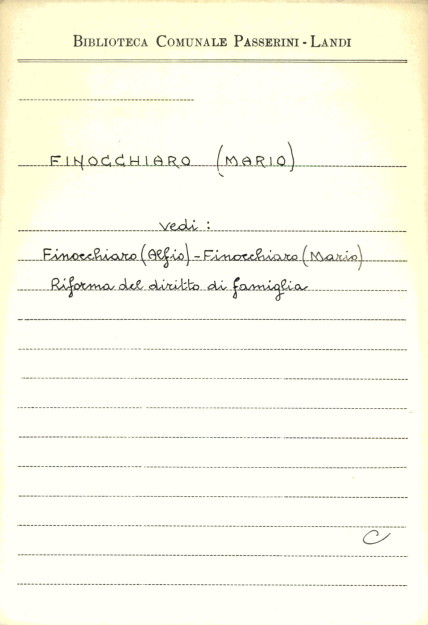 BIBLIOTECA COMUNALE PASSERINI - LANDI
FINOCCHIARO (MARIO)
vedi :
Finocchiaro (Alfio) - Finocchiaro (Mario)
Riforma del diritto di famiglia
C